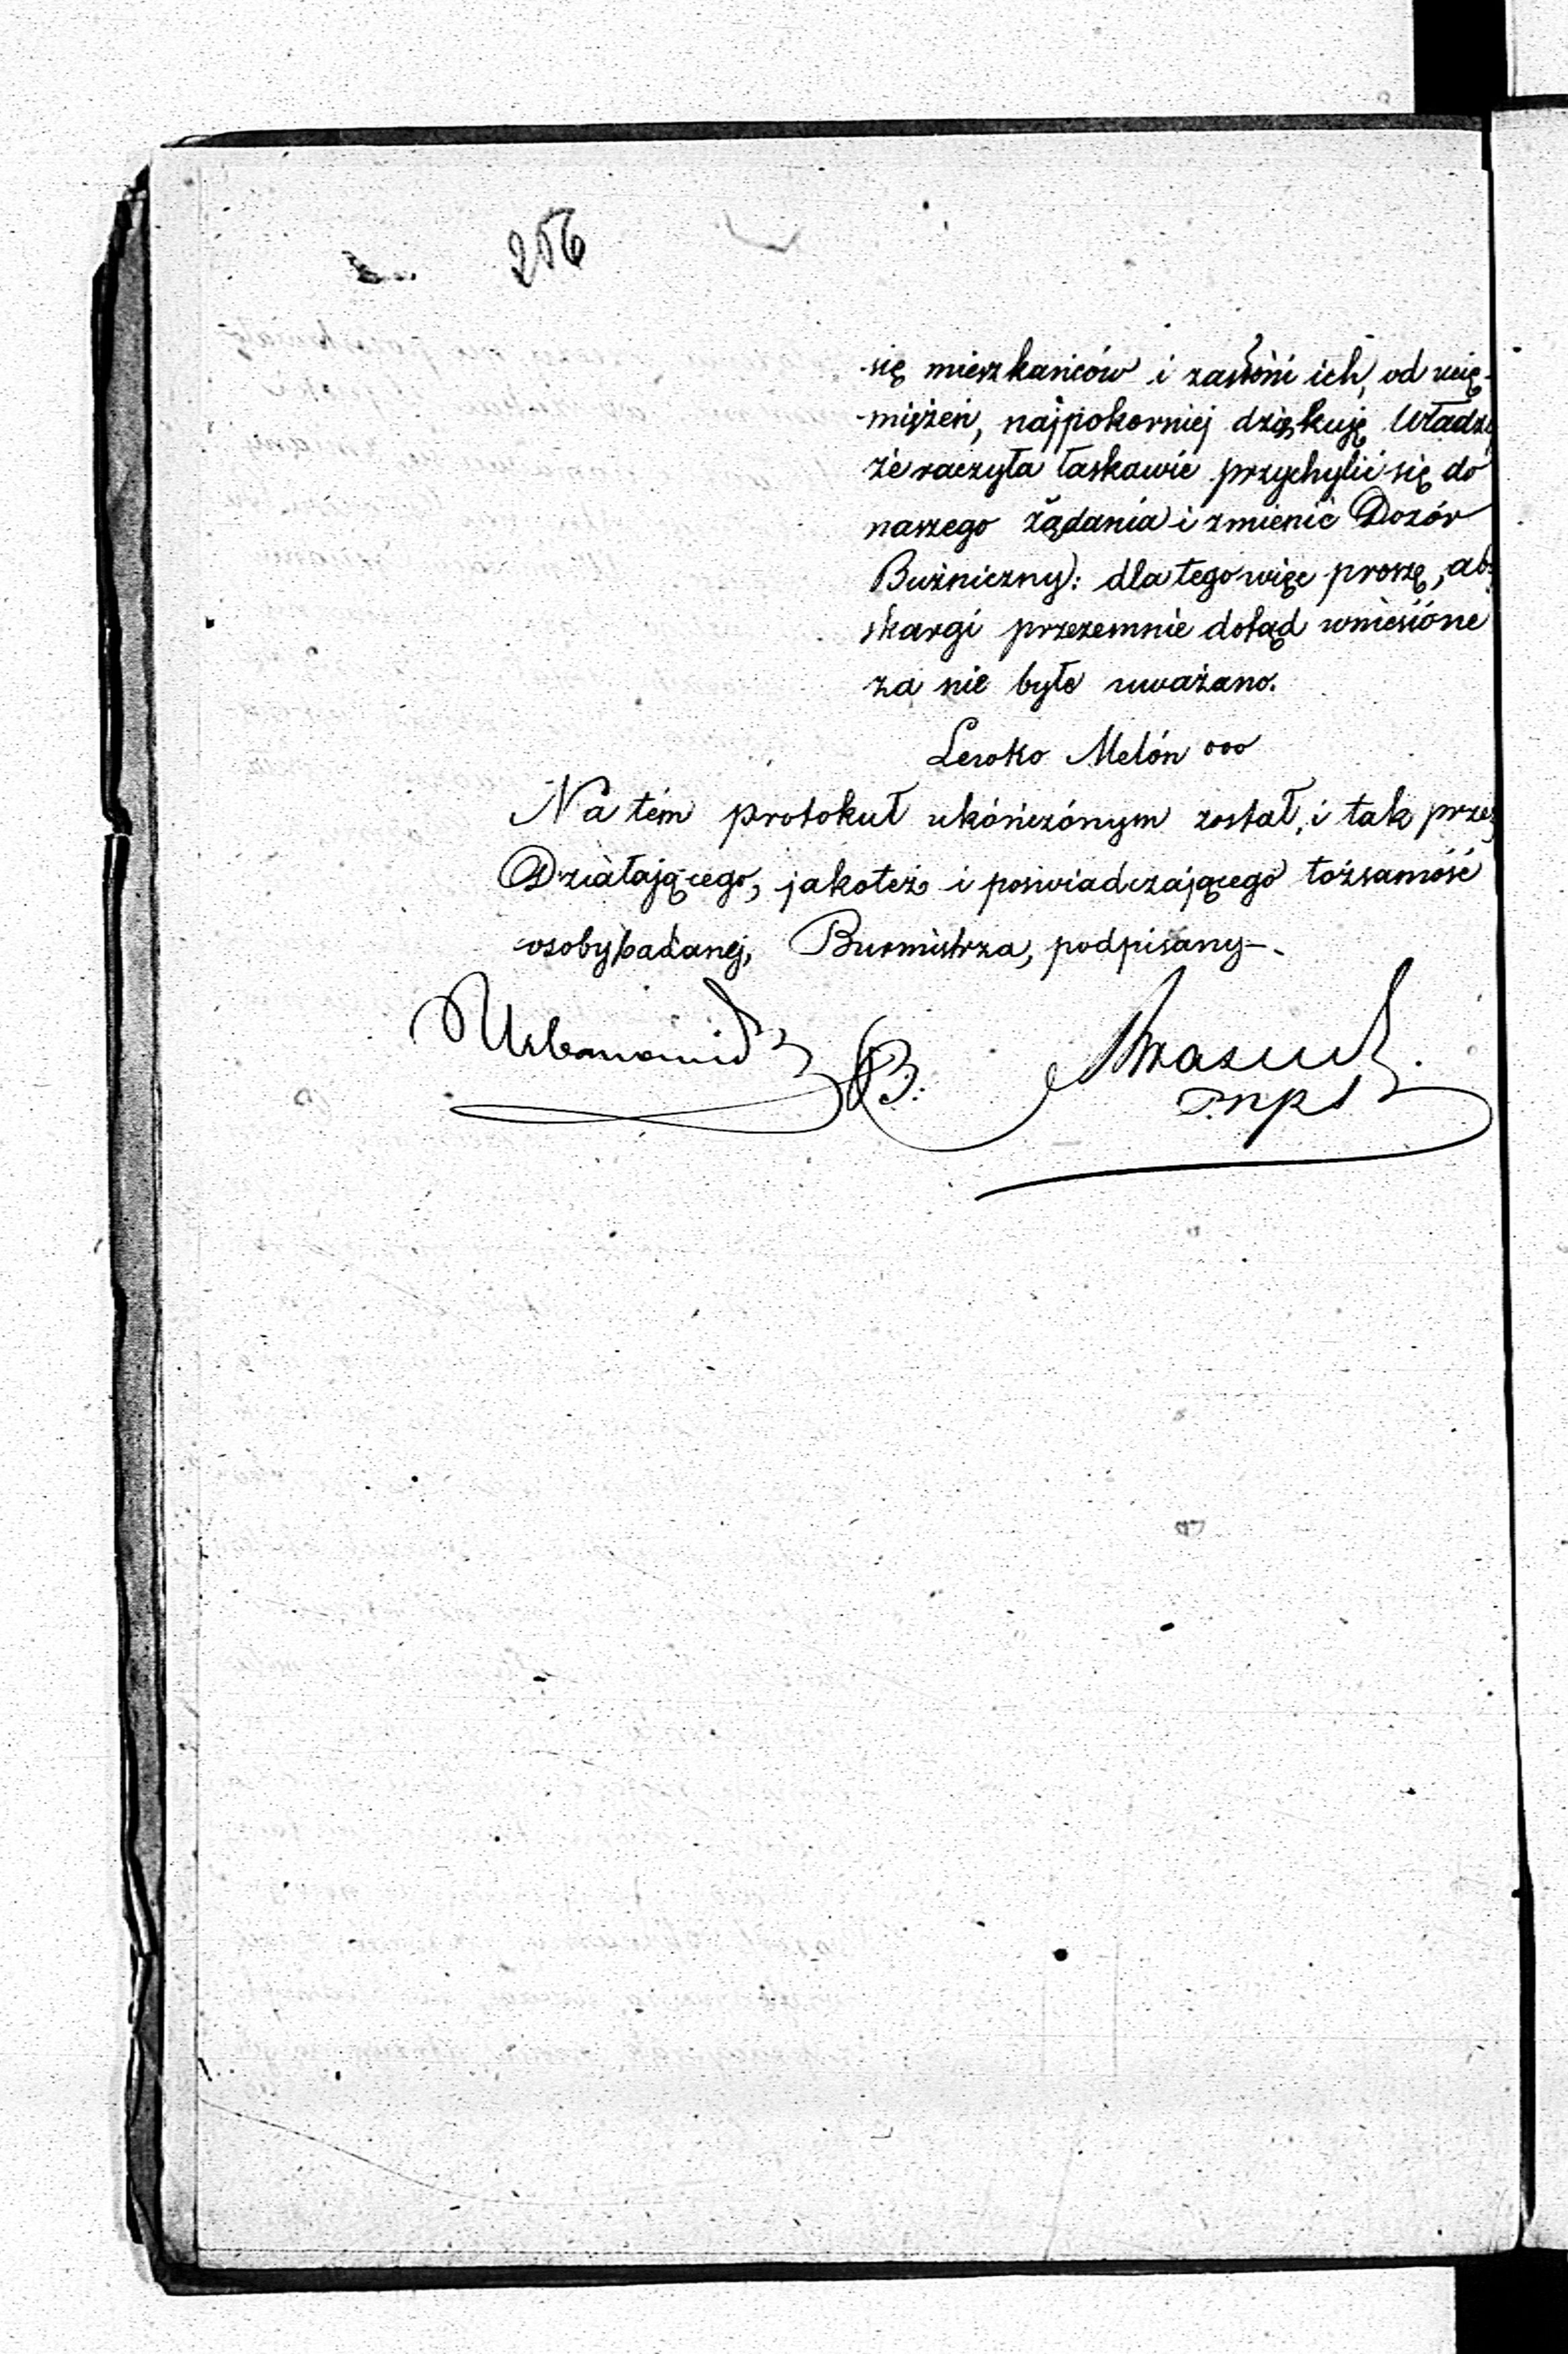 256
się mieszkańców i zasłoni ich, od ucię-
-miężeń, najpokorniej dziękuję Władzy
że raczyła łaskawie przychylić się do
naszego żądania i zmienić Dozór
Bużniczny: dla tego więc proszę, aby
skargi przezemnie dotąd wniesione
za nie byłe uważano.
Lewko Melón ooo
Na tém protokuł ukończonym został, i tak przez
Działającego, jakoteż i poświadczającego tożsamość
osoby badanej, Burmistrza, podpisany—.
Urbanowicz B.
mps